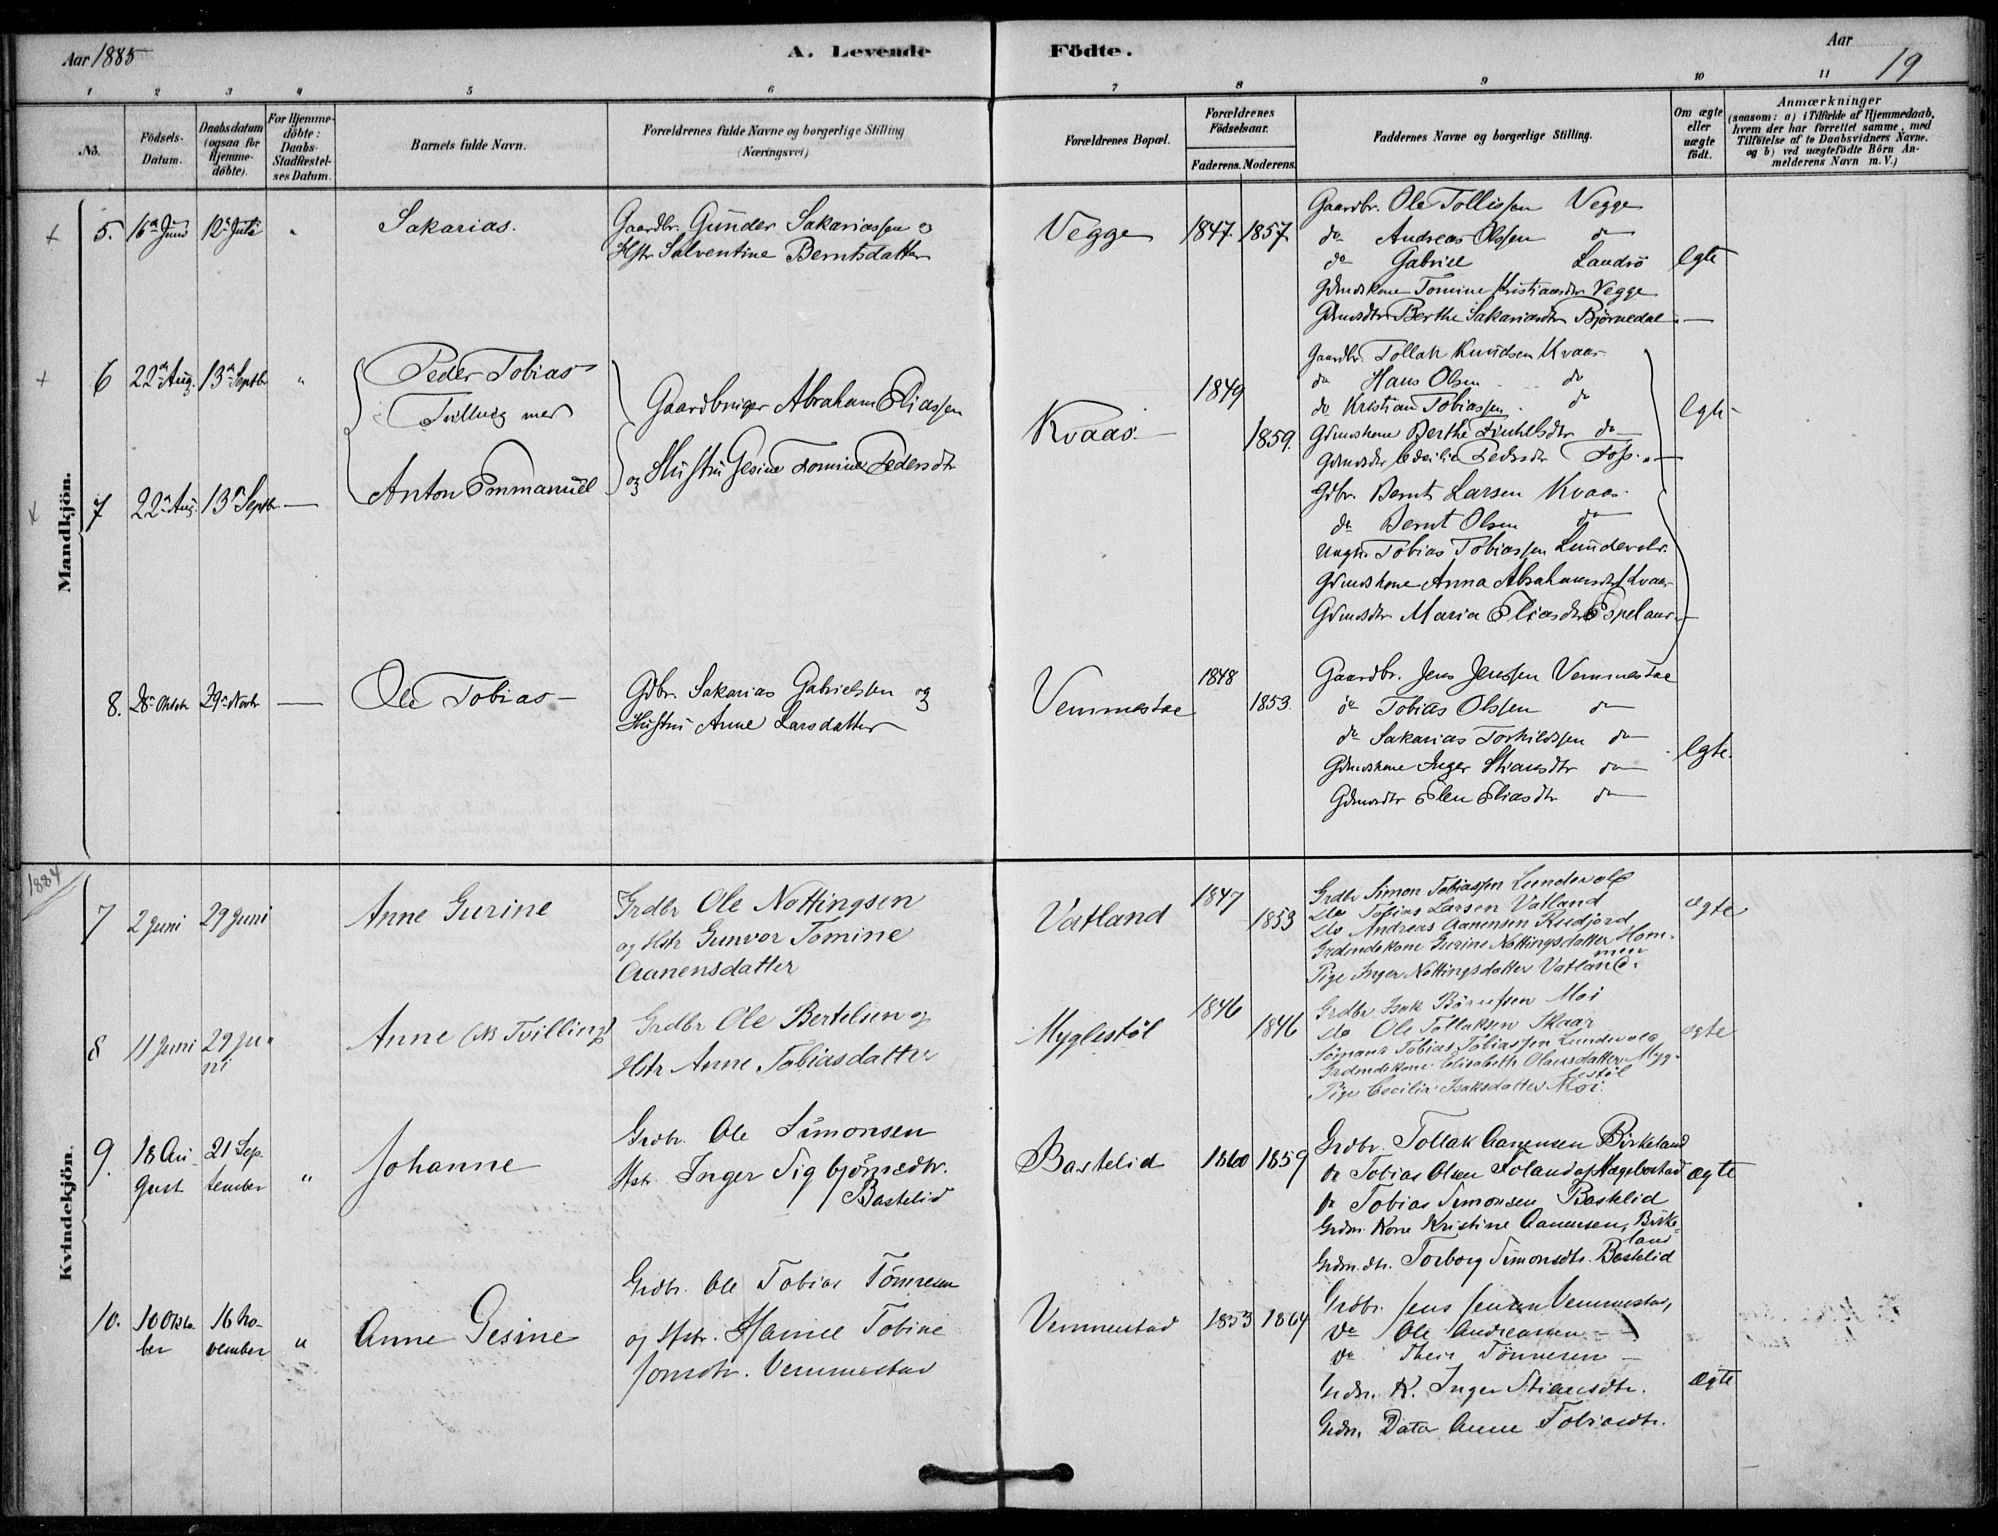 Aar 1885
A. Levende
Födte.
Aar
19
1 2 3 4 5 6 7 8 9 10 11
No.
Födsels-
Datum.
Daabsdatum
(ogsaa for
Hjemme-
döbte).
For Hjemme-
döbte:
Daabs-
Stadfæstel-
ses Datum.
Barnets fulde Navn.
Forældrenes fulde Navne og borgerlige Stilling
(Næringsvei).
Forældrenes Bopæl.
Forældrenes
Födselsaar.
Faderens. Moderens.
Faddernes Navne og borgerlige Stilling.
Om ægte
eller
uægte
födt.
Anmærkninger
(saasom: a) i Tilfælde af Hjemmedaab,
hvem der har forrettet samme, med
Tilföielse af to Daabsvidners Navne.
og b) ved uægtefödte Börn An-
melderens Navn m. V.)
Mandkjön.
5. 16de Juni 12te Juli
Sakarias.
Gaardbr. Gunder Sakariassen og
Hstr Salventine Berntsdatter
Vegge
1847 1857
Gaardbr. Ole Tollissen Vegge
do Andreas Olssen do
do Gabriel Landrö
Gdmdskone Tomine Kristiansdtr Vegge
Gdmdsdtr Berthe Sakariasdtr Björnedal
Egte
6 22de Aug. 13de Septbr
Peder Tobias
Tvilling med
7 22de Aug. 13de Septbr
Anton Emmanuel
Gaardbruger Abraham Eliassen
og Hustru Gesine Tomine Pedersdtr
Kvaas
1849
1859.
Gaardbr. Tollak Knudsen Kvaas
do Hans Olsen do
do Kristian Tobiassen do
Gdmdskone Berthe do
Gdmdsdtr Cecilie Pedersdtr Foss
Egte
Gdbr. Bernt Larsen Kvaas
do Bernt Olsen do
Ungk. Tobias Tobiassen Lundevold.
Gdmdskone Anna Abrahamsdtr Kvaas
Gdmdsdtr Maria Eliasdtr Espeland
8. 28de Oktbr 29de Novbr
Ole Tobias
Gdbr. Sakarias Gabrielsen og
Hustru Anne Larsdatter
Vemmestad
1848
1853.
Gaardbr. Jens Jenssen Vemmestad
do Tobias Olssen do
do Sakarias Torkildssen do
Gdmdskone Inger Stiansdtr do
Gdmdsdtr Elen Eliasdtr do
Egte.
1884
Kvindekjön.
7 2 Juni 29 Juni
Anne Gurine
Grdbr Ole Nottingsen
og Hstr Gunvor Tomine
Aanensdatter
Vatland
1847
1853
Grdbr Simon Tobiassen Lundevold
do Tobias Larsen Vatland
do Andreas Aanensen Rudjord
Grdmdskone Gurine Nottingsdatter Hom-
men
Pige Inger Nottingsdatter Vatland.
ægte
8 11 Juni 29 Ju-
ni
Anne (NB Tvilling)
Grdbr Ole Bertelsen og
Hstr Anne Tobiasdatter
Myglestöl
1846
1846
Grdbr. Isak Börufsen Moi
do Ole Tollaksen Skaar
Sömand Tobias Tobiassen Lundevold
Grdmdskone Elisabeth Olausdatter Myg-
lestöl
Pige Cecilia Isaksdatter Moi.
ægte
9. 18 Au-
gust 21 Sep-
tember "
Johanne
Grdbr. Ole Simonsen
Hstr. Inger Sigbjörnsdtr.
Bastelid
Bastelid
1860 1859
Grdbr. Tollak Aanensen Birkeland
do Tobias Olsen Foland af Hægebostad
do Tobias Simonsen Bastelid
Grdm. Kone Kristine Aanensen, Birke-
land
Grdm. dtr. Torborg Simonsdtr. Bastelid
ægte
10. 10 Okto-
ber 16 No-
vember "
Anne Gesine
Grdbr. Ole Tobias Tönnesen
og Hstr. Hanne Tobine
Jonsdtr. Vemmestad
Vemmestad
1853 1864
Grdbr. Jens Jensen Vemmestad,
do Ole Andreassen
do Theis Tönnesen
Grdm. K. Inger Stiansdtr.
Grdm. Datter Anne Tobiasdtr.
ægte